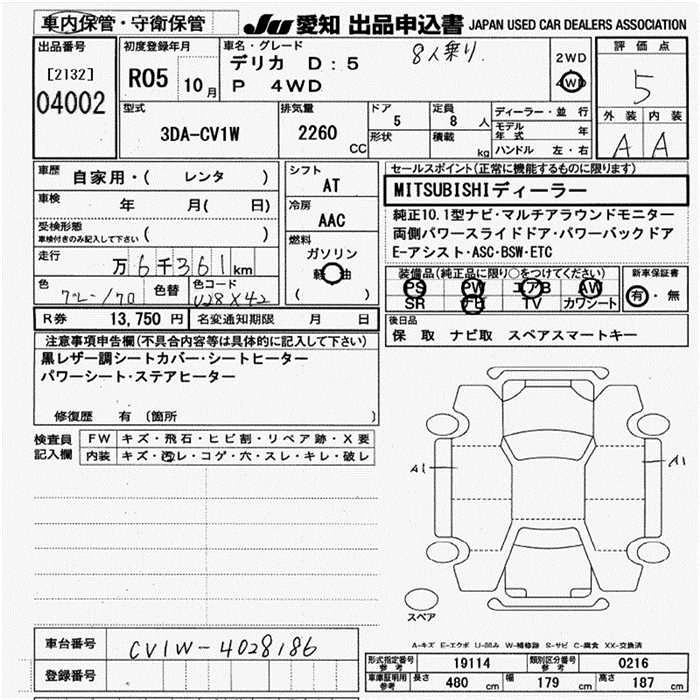 車内保管・守衛保管
JU 愛知 出品申込書 JAPAN USED CAR DEALERS ASSOCIATION
出品番号
[2132]
04002
初度登録年月
R05 10月
車名・グレード
デリカ D:5
P 4WD
8人乗り
2WD
4WD
評価点
5
外装 内装
A A
型式
3DA-CV1W
排気量
2260
CC
ドア
5
形状
定員
8 人
積載
kg
ディーラー・並行
モデル年式 年
ハンドル 左・右
車歴
自家用・( レンタ )
車検
年 月( 日)
受検形態
車検付きのみ記入して下さい ( )
走行
万6千361km
色
グレー/70
色替
色コード
U28X42
R券 13,750 円
名変通知期限 月 日
シフト
AT
冷房
AAC
燃料
ガソリン
軽油
( )
セールスポイント(正常に機能するものに限ります)
MITSUBISHIディーラー
純正10.1型ナビ・マルチアラウンドモニター
両側パワースライドドア・パワーバックドア
E-アシスト・ASC・BSW・ETC
装備品(純正品に限り○をつけてください)
PS PW エアB AW
SR ナビ TV カワシート
新車保証書
有・無
後日品
保 取 ナビ取 スペアスマートキー
注意事項申告欄(不具合内容等は具体的に記入して下さい)
黒レザー調シートカバー・シートヒーター
パワーシート・ステアヒーター
修復歴 有 〔箇所 〕
検査員記入欄
FW キズ・飛石・ヒビ割・リペア跡・X要
内装 キズ・汚レ・コゲ・穴・スレ・キレ・破レ
A1
A1
スペア
A-キズ E-エクボ U-凹み W-補修跡 S-サビ C-腐食 XX-交換済
車台番号
CV1W-4028186
登録番号
形式指定番号 参考 19114
類別区分番号 参考 0216
車庫証明用 参考
長さ 480 cm
幅 179 cm
高さ 187 cm